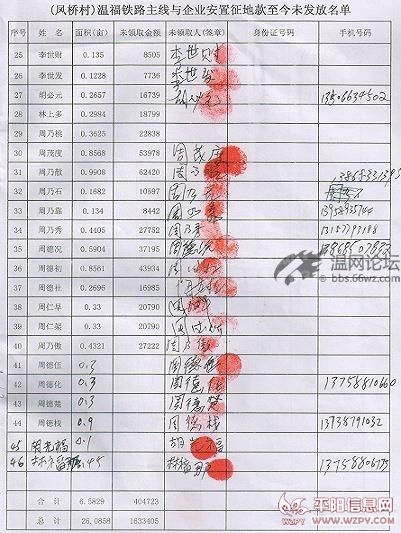 (凤桥村)温福铁路主线与企业安置征地款至今未发放名单
序号 姓名 面积(亩) 未领取金额 未领取人(签章) 身份证号码 手机号码
25 李世财 0.135 8505 李世财
26 李世发 0.1228 7736 李世发
27 胡必元 0.2657 16739 13506634502
28 林上多 0.2984 18799
29 周乃桃 0.3625 22838
30 周茂度 0.8568 53978 周茂度
31 周乃散 0.9908 62420
32 周乃石 0.1682 10597
33 周乃靠 0.134 8442
34 周乃秀 0.4405 27752 周乃秀
35 周德况 0.5904 37195 周德况
36 周德初 0.8561 43934
37 周德杜 0.2696 16985
38 周仁早 0.33 20790
39 周仁架 0.33 20790
40 周乃傲 0.4321 27222
41 周德伍 0.3 周德伍
42 周德化 0.3 周德化 13758810660
43 周德楚 0.3 周德楚
44 周德栈 0.9 周德栈 13738791032
45 0.1
46 .45 13758806775
合计 6.5829 404723
总计 26.0858 1633405
温网论坛
bbs.66wz.com
平阳信息网
WZPY WWW.WZPY.COM